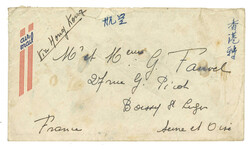 air
mail
Via Hong Kong
航空
香港轉
Mr et Mme G. Fauvel
27 rue G. Picot
Boissy St Leger
France
Seine et Oise